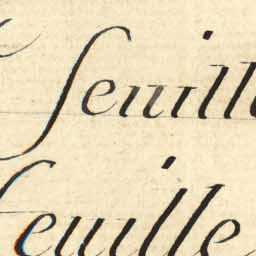 ſeuill
euille